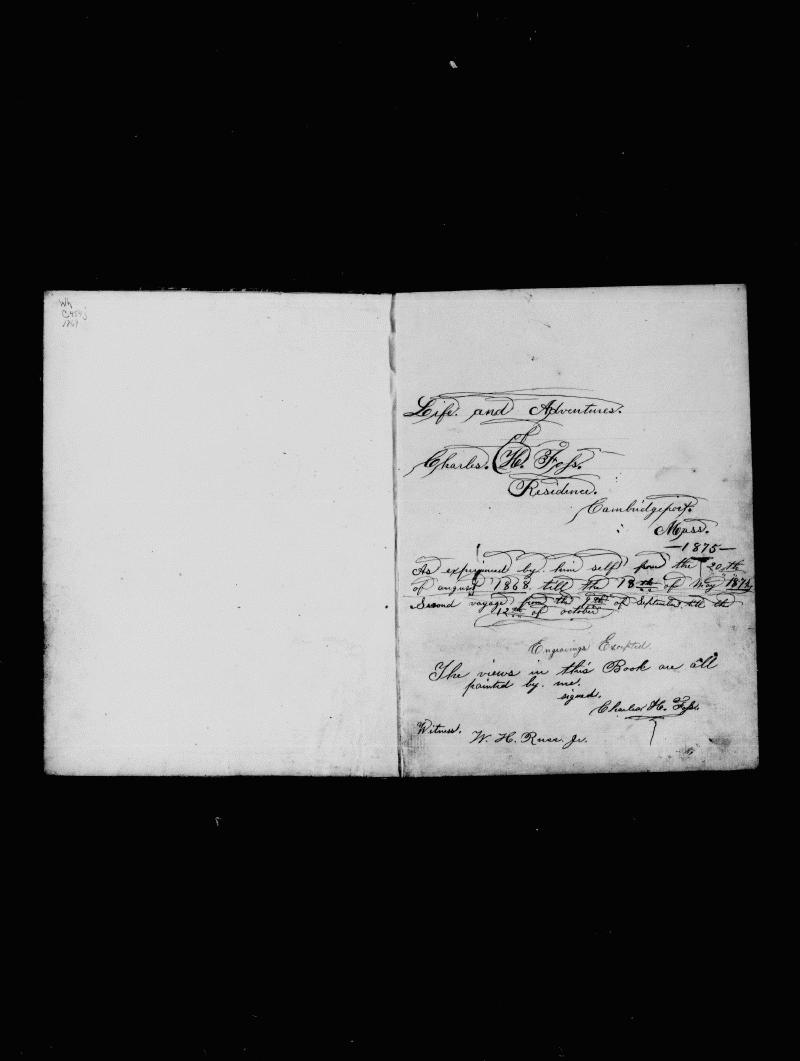 Wh
C454j
1869
Life. and Adventures.
of
Charles. H. Foss.
Residence.
Cambridgeport.
Mass.
—1875—
As experienced by. him self from the 20th
of august 1868. till the 18th of May
Second voyage from the 9th of September. till the
12th of october
Engravings Excepted.
The views in this Book are all
painted by. me.
signed.
Charles H. Foss.
Witness.
W. H. Russ. Jr.